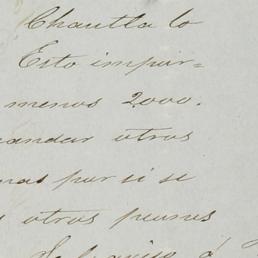 Chautla lo
Esto impor=
menos 2000.
mandar otros
mas por si se
otros peones